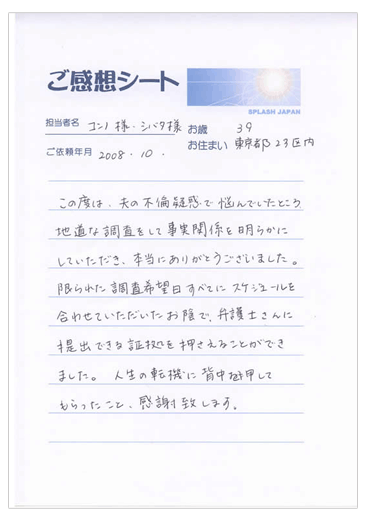 ご感想シート
SPLASH JAPAN
担当者名 コンノ様・シバタ様 お歳 39
ご依頼年月 2008.10. お住まい 東京都23区内
この度は、夫の不倫疑惑で悩んでいたところ
地道な調査をして事実関係を明らかに
していただき、本当にありがとうございました。
限られた調査希望日すべてにスケジュールを
合わせていただいたお陰で、弁護士さんに
提出できる証拠を押さえることができ
ました。 人生の転機に背中を押して
もらったこと、感謝致します。